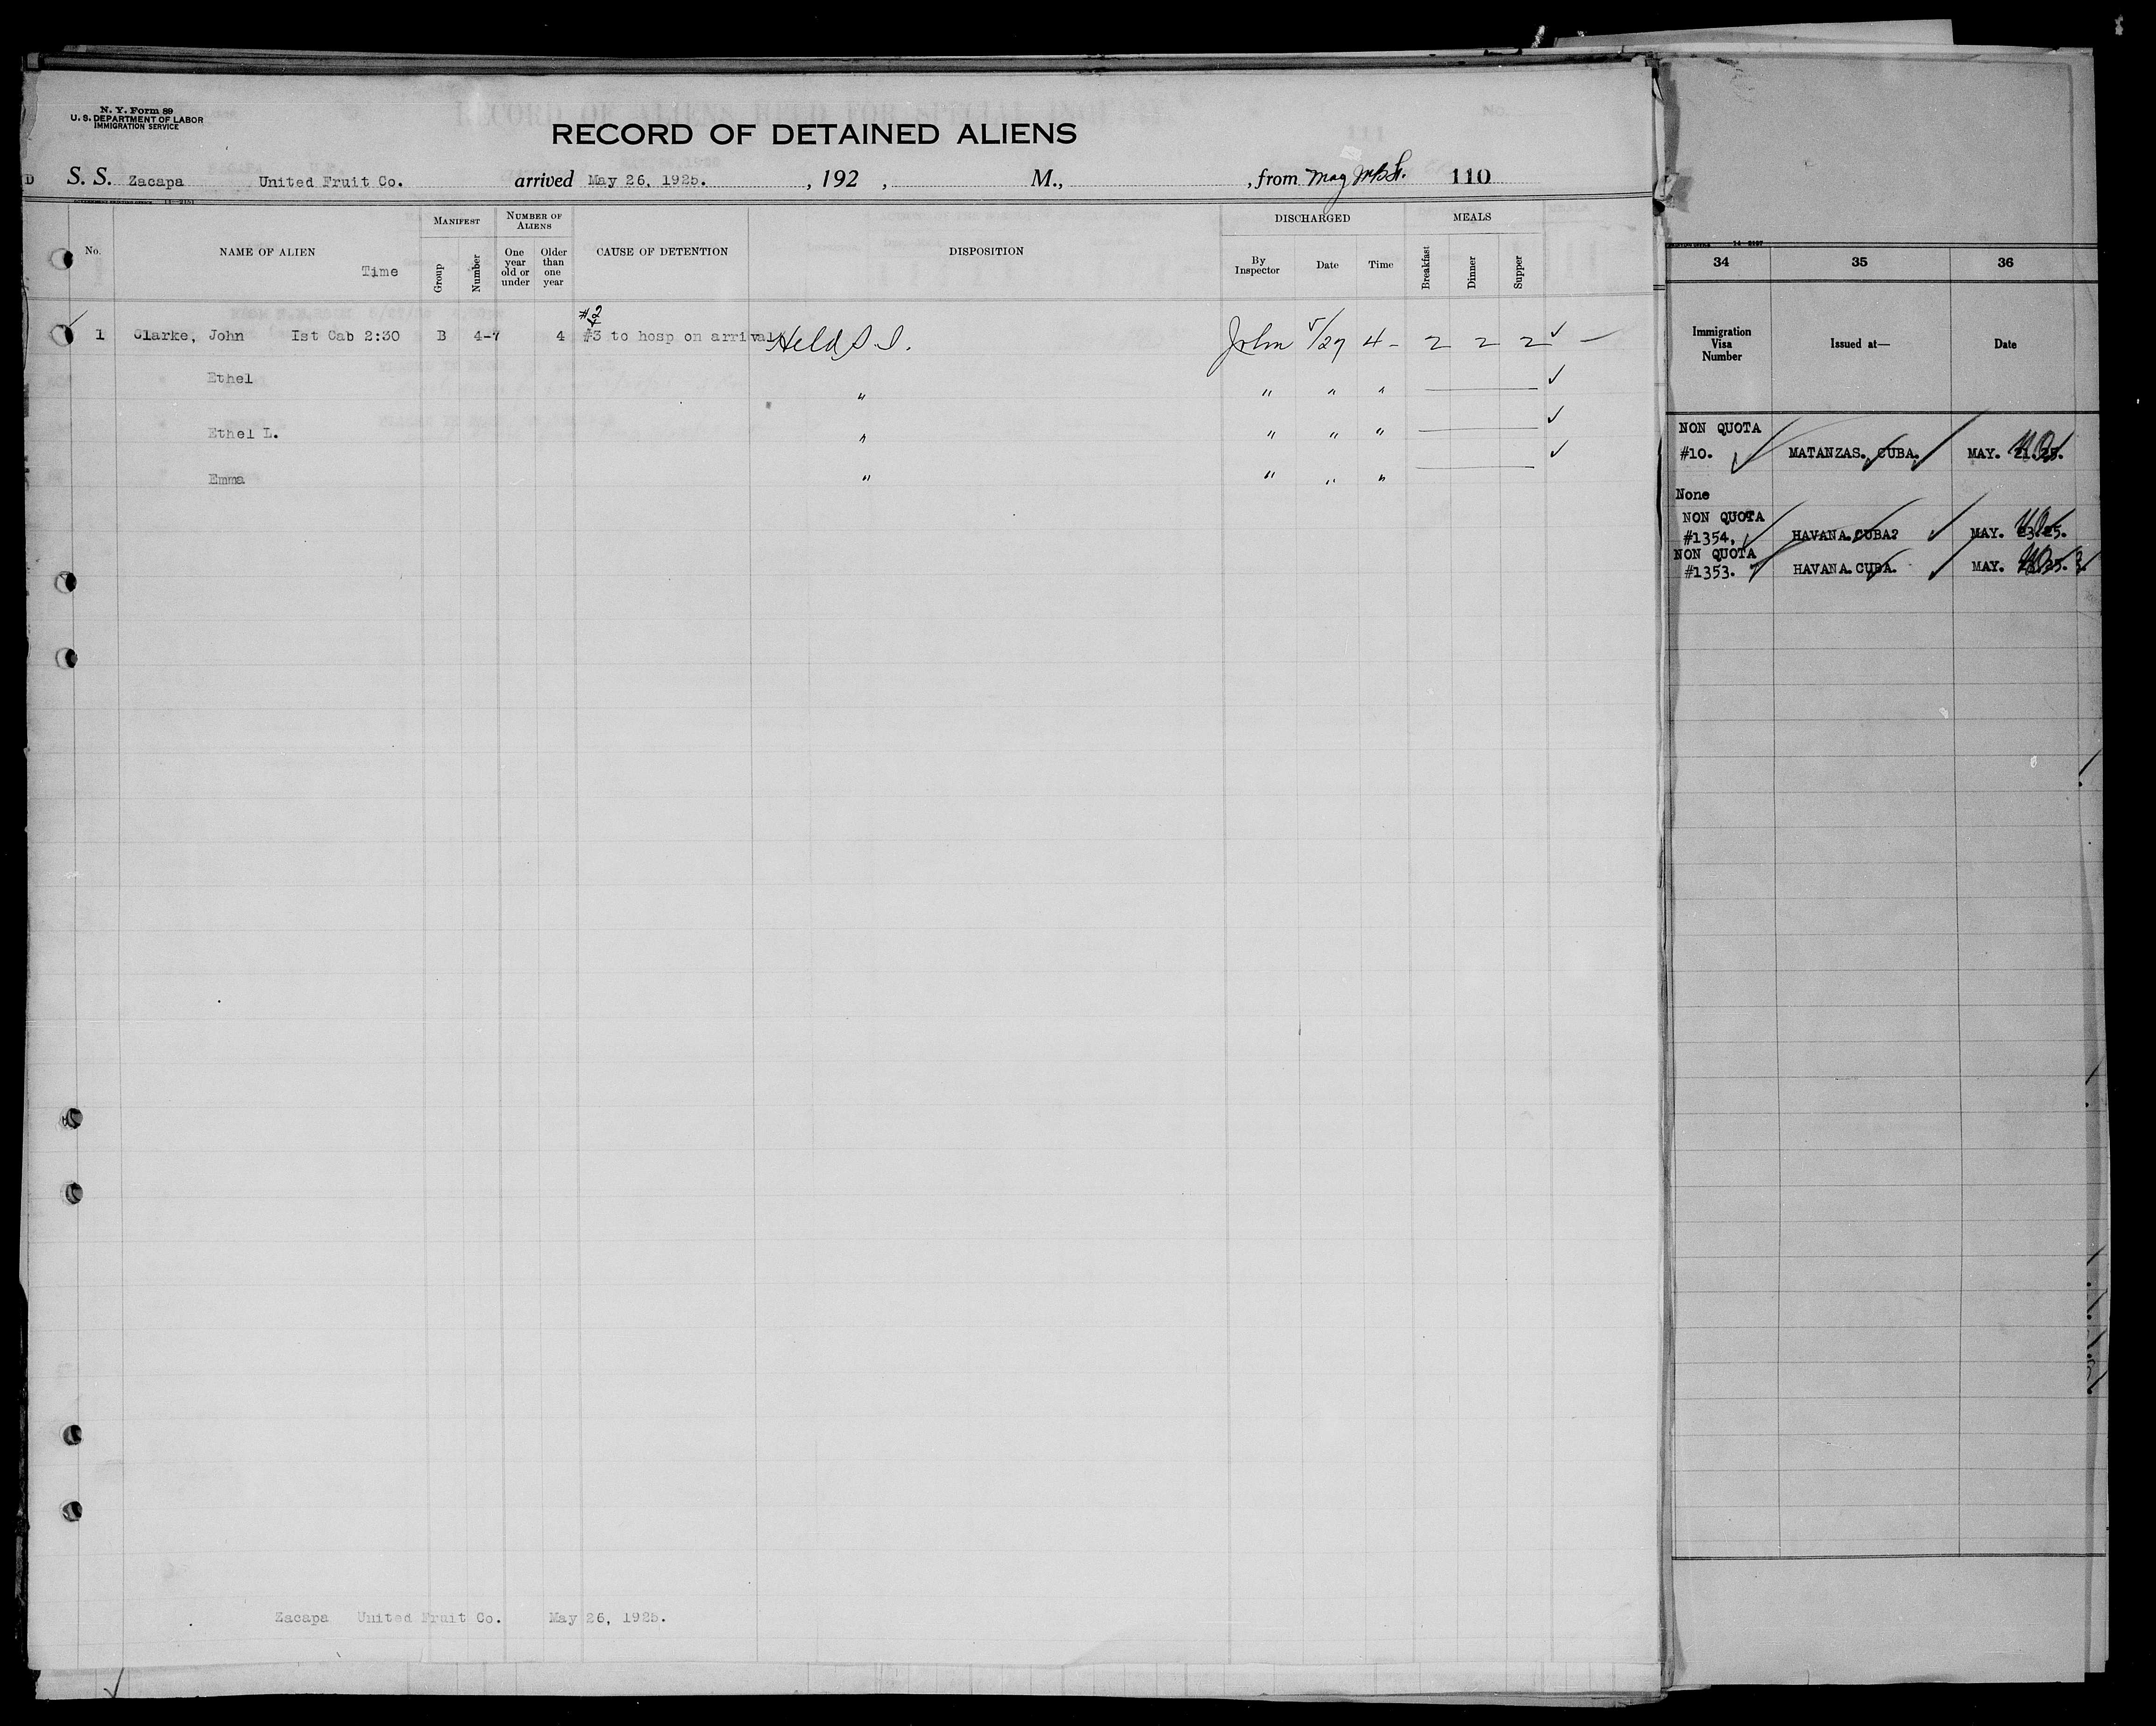 N. Y. Form 89
U. S. DEPARTMENT OF LABOR
IMMIGRATION SERVICE
RECORD OF DETAINED ALIENS
S. S. Zacapa United Fruit Co. arrived May 26, 1925. , 192 , M., , from 110
No. NAME OF ALIEN Time
MANIFEST Group Number
NUMBER OF ALIENS One year old or under Older than one year
CAUSE OF DETENTION
DISPOSITION
DISCHARGED By Inspector Date Time
MEALS Breakfast Dinner Supper
#2
1 Clarke, John Ist Cab 2:30 B 4-7 4 #3 to hosp on arrival Held S. I. John 5/27 4- 2 2 2 ✓ —
Ethel " " " " ✓
Ethel L. " " " " ✓
Emma " " " " ✓
Zacapa United Fruit Co. May 26, 1925.
14-2197
34 35 36
Immigration Visa Number Issued at— Date
NON QUOTA
#10. MATANZAS. CUBA. MAY. 21.25.
None
NON QUOTA
#1354, HAVANA.CUBA? MAY. 23.25.
NON QUOTA
#1353. HAVANA.CUBA. MAY.